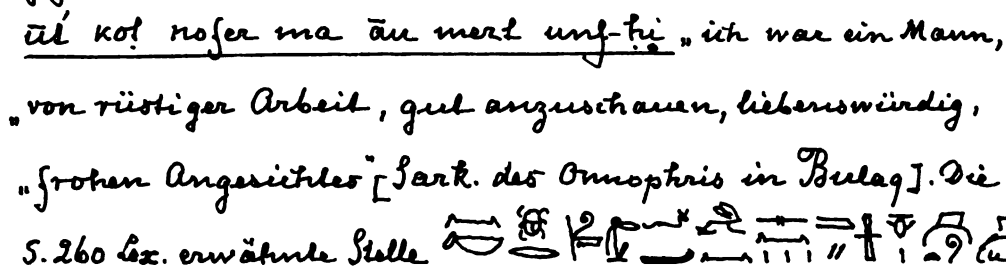 ūt́ kot nofer ma āu mert unf-ḥi „ich war ein Mann,
„von rüstiger Arbeit, gut anzuschauen, liebenswürdig,
„frohen Angesichtes“ [Sark. des Onnophris in Bulaq]. Die
S. 260 Lex. erwähnte Stelle